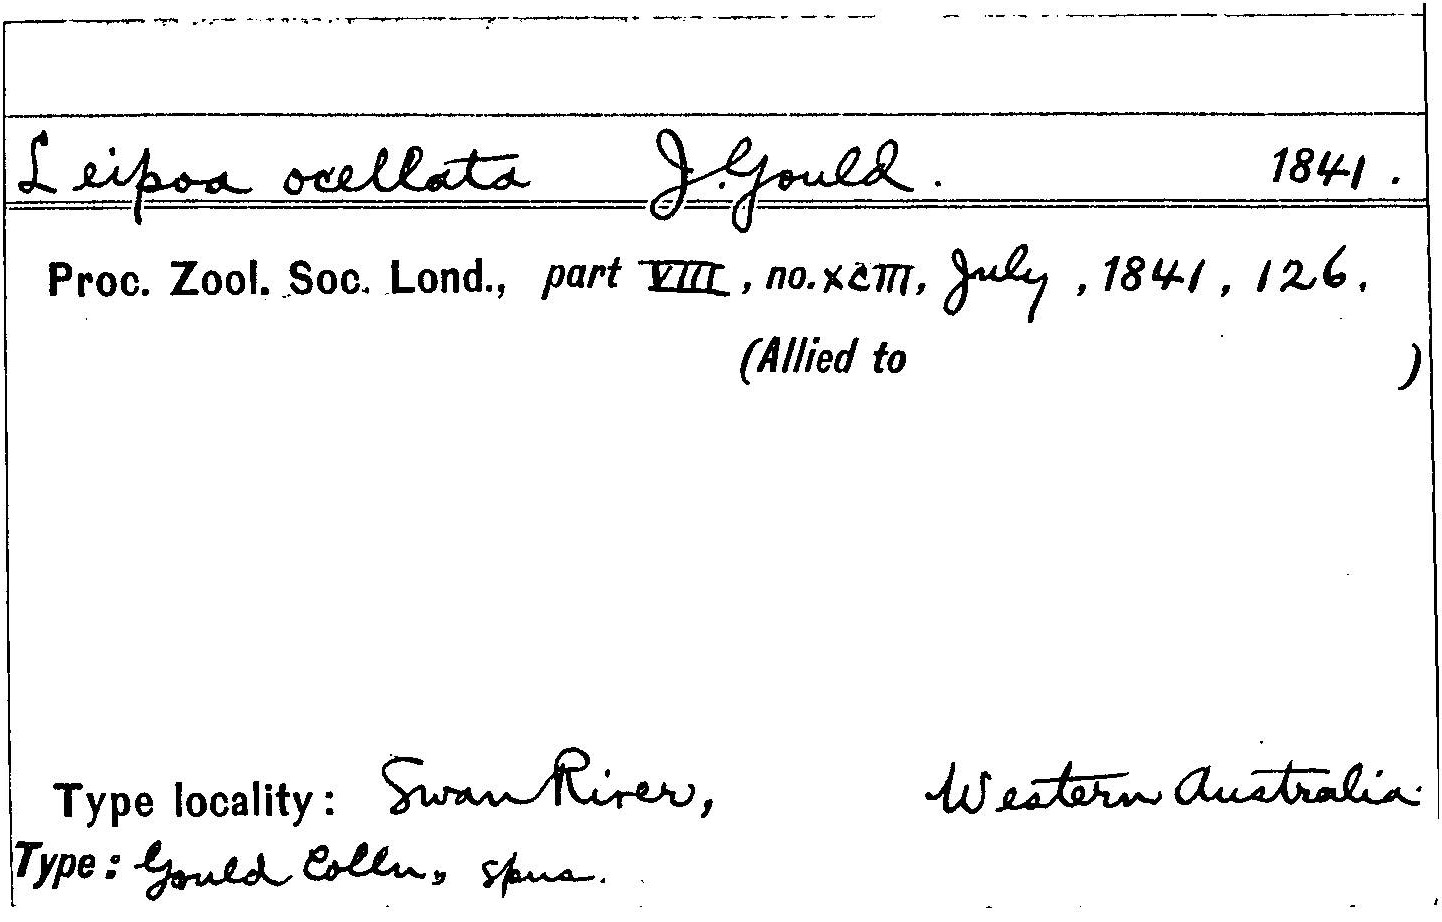 Leipoa ocellata J. Gould. 1841.
Proc. Zool. Soc. Lond., part VIII, no. XCIII, July, 1841, 126.
(Allied to )
Type locality: Swan River, Western Australia.
Type: Gould Colln, spns.